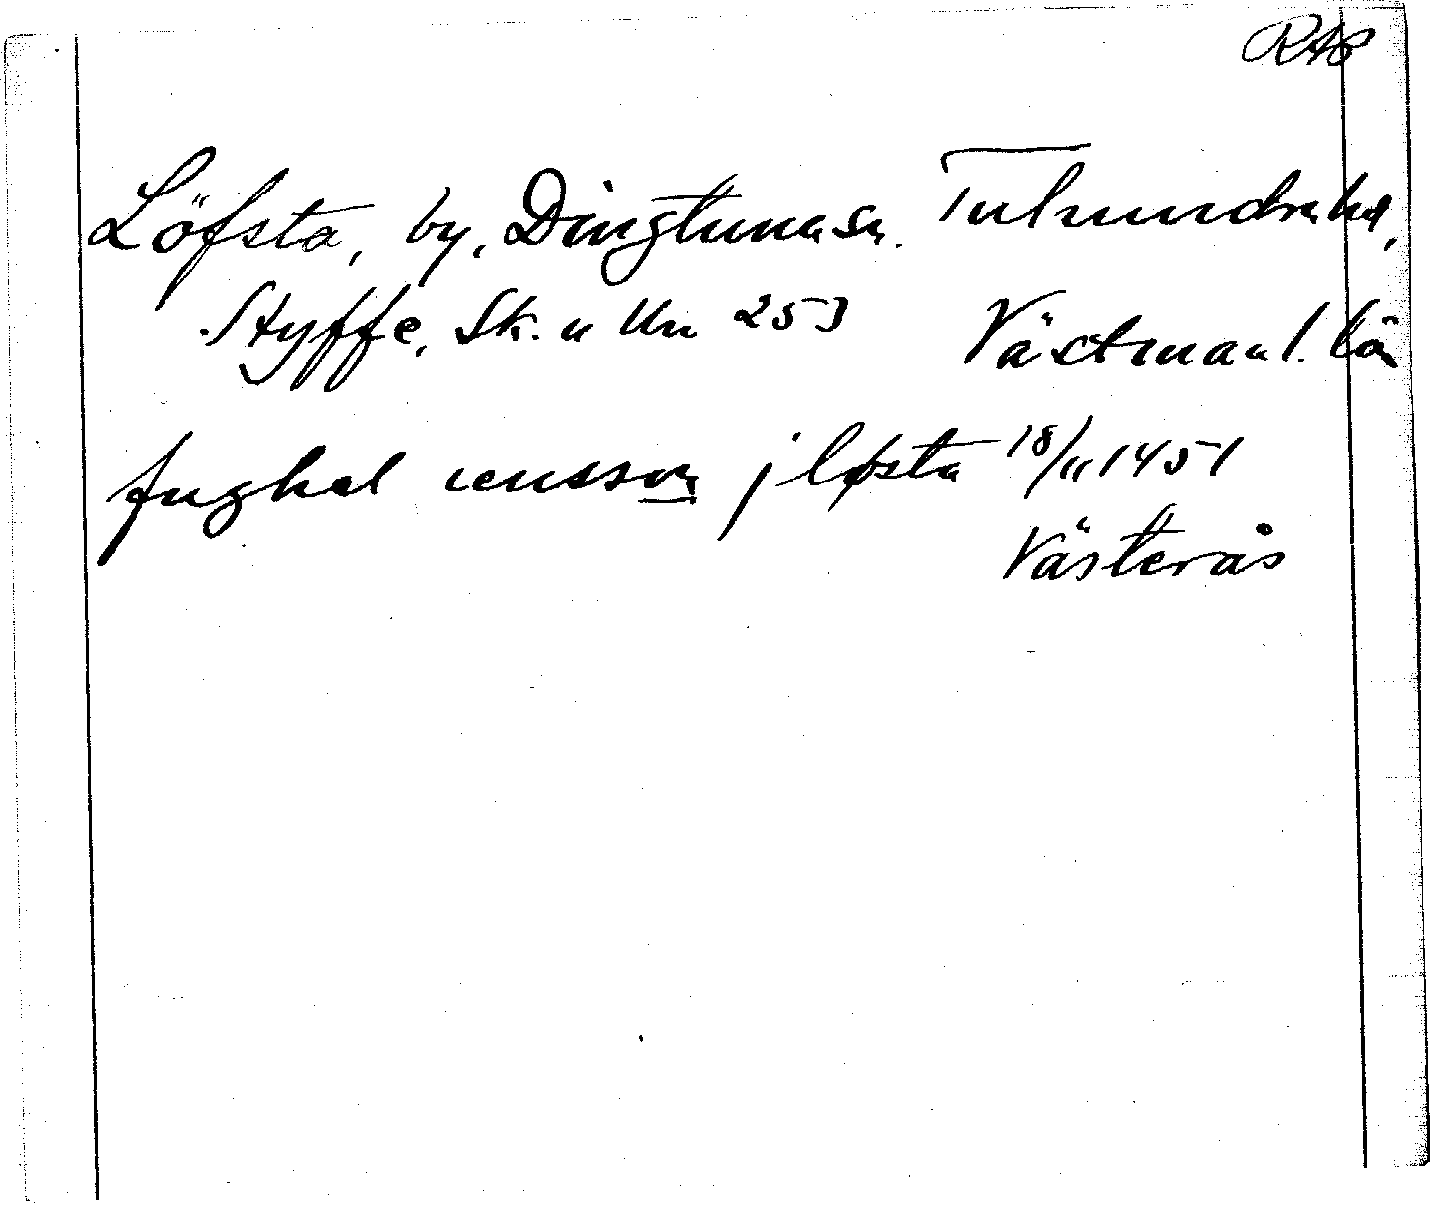 RAP
Löfsta, by, Dingtuna sn. Tuhundra hd,
Styffe, Sk. u Un 253 Västmanl. län
fughel jensson j løsta 18/11 1451
Västerås